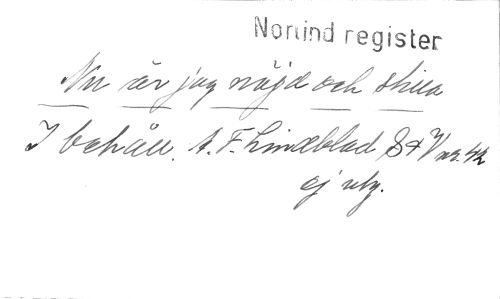 Norlind register
Nu är jag nöjd och skiea
I behåll. A. F. Lindblad S & V nr. 42
ej utg.